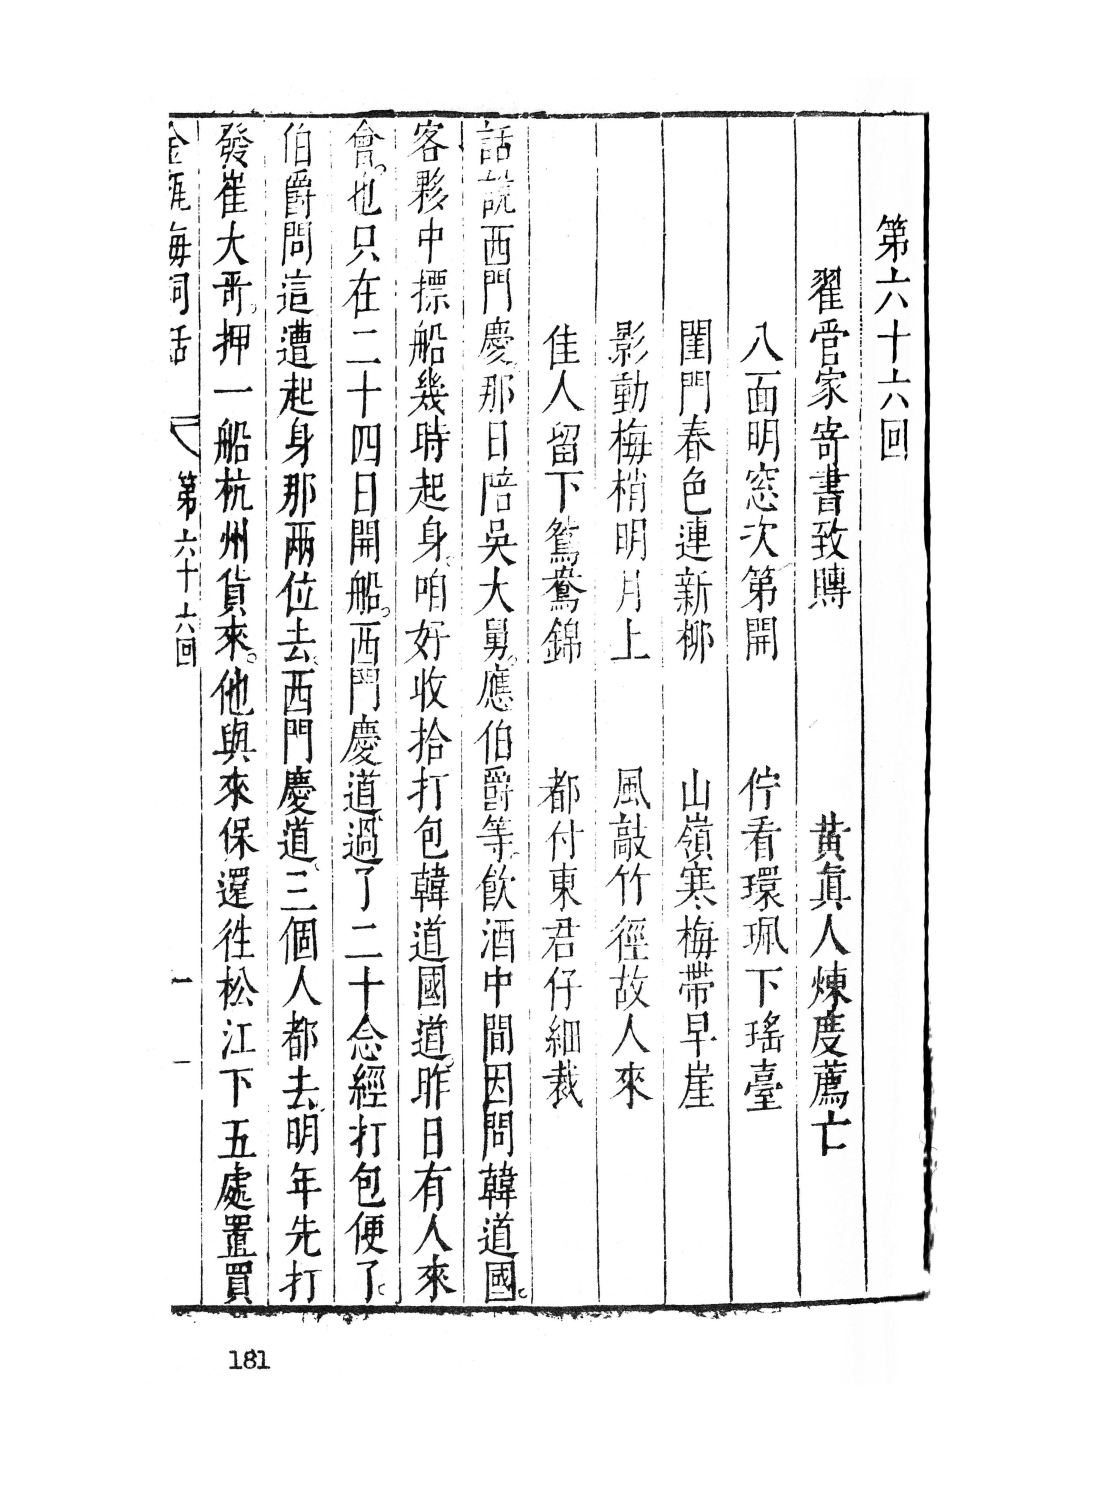 第六十六回
翟管家寄書致賻　黄眞人煉度薦亡
八面明窓次第開　佇看環珮下瑤臺
閨門春色連新栁　山嶺寒梅帶早崖
影動梅梢明月上　風敲竹徑故人來
佳人留下鴛鴦錦　都付東君仔細裁
話說西門慶那日陪吳大舅。應伯爵等飲酒中間因問韓道國。
客夥中摽船幾時起身。咱好收拾打包韓道國道。昨日有人來
會。也只在二十四日開船。西門慶道過了二十念經打包便了。
伯爵問這遭起身那兩位去。西門慶道。三個人都去。明年先打
發崔大哥。押一船杭州貨來。他與來保還徃松江下五處置買
金瓶梅詞話　第六十六回　一
181